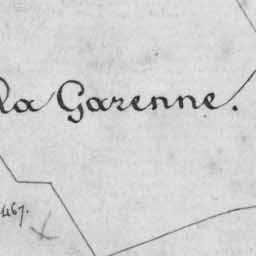 la Garenne.
467.